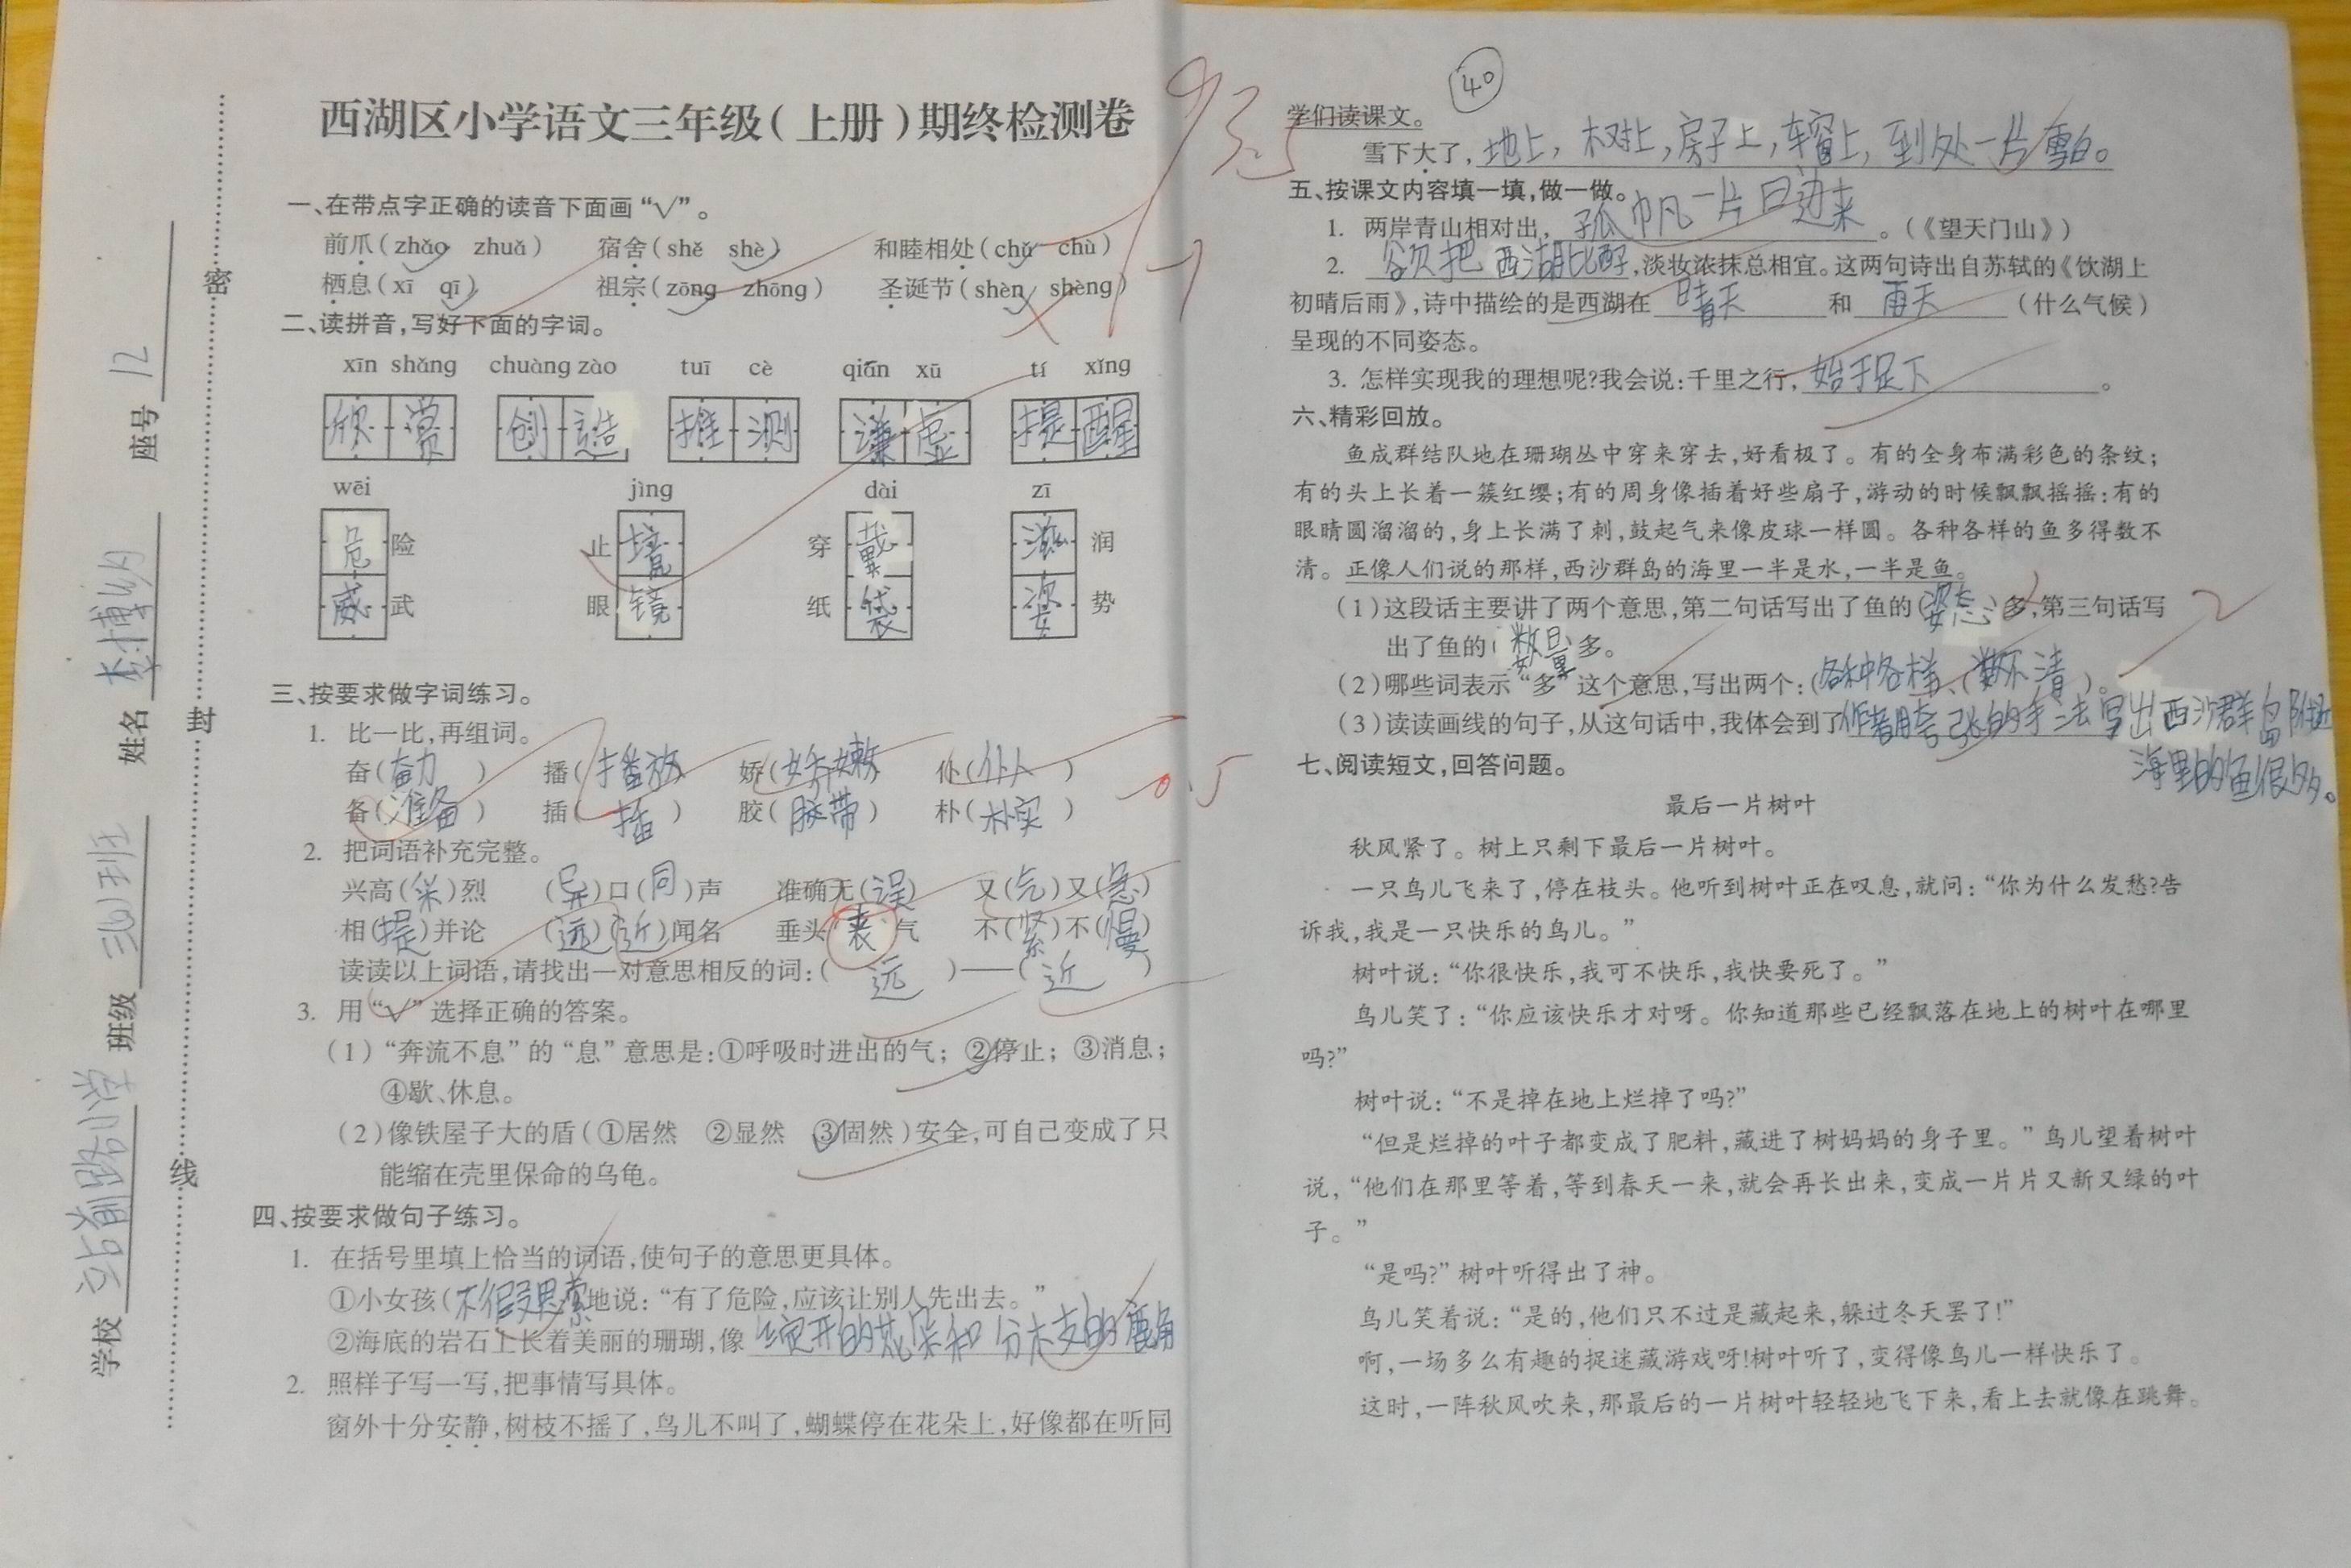 西湖区小学语文三年级(上册)期终检测卷
密
封
线
学校 站前路小学 班级 三(1)班 姓名 座号 12
一、在带点字正确的读音下面画“√”。
前爪(zhǎo zhuǎ) 宿舍(shě shè) 和睦相处(chǔ chù)
栖息(xī qī) 祖宗(zōng zhōng) 圣诞节(shèn shèng)
-1
二、读拼音,写好下面的字词。
xīn shǎng chuàng zào tuī cè qiān xū tí xǐng
欣赏 创造 推测 谦虚 提醒
wēi jìng dài zī
危险 止境 穿戴 滋润
威武 眼镜 纸袋 姿势
三、按要求做字词练习。
1. 比一比,再组词。
奋(奋力) 播(播放) 娇(娇嫩) 仆(仆人)
备(准备) 插(插) 胶(胶带) 朴(朴实)
-0.5
2. 把词语补充完整。
兴高(采)烈 (异)口(同)声 准确无(误) 又(气)又(急)
相(提)并论 (远)(近)闻名 垂头 气 不(紧)不(慢)
读读以上词语,请找出一对意思相反的词:(远)——(近)
3. 用“√”选择正确的答案。
(1)“奔流不息”的“息”意思是:①呼吸时进出的气;②停止;③消息;
④歇、休息。
(2)像铁屋子大的盾(①居然 ②显然 ③固然)安全,可自己变成了只
能缩在壳里保命的乌龟。
四、按要求做句子练习。
1. 在括号里填上恰当的词语,使句子的意思更具体。
①小女孩(不假思索地说:“有了危险,应该让别人先出去。”
②海底的岩石上长着美丽的珊瑚,像绽开的花朵和分枝的鹿角
2. 照样子写一写,把事情写具体。
窗外十分安静,树枝不摇了,鸟儿不叫了,蝴蝶停在花朵上,好像都在听同
93.5
40
学们读课文。
雪下大了,地上,树上,房子上,车窗上,到处一片雪白。
五、按课文内容填一填,做一做。
1. 两岸青山相对出,孤帆一片日边来。(《望天门山》)
2. 欲把西湖比西子,淡妆浓抹总相宜。这两句诗出自苏轼的《饮湖上
初晴后雨》,诗中描绘的是西湖在晴天和雨天(什么气候)
呈现的不同姿态。
3. 怎样实现我的理想呢?我会说:千里之行,始于足下。
六、精彩回放。
鱼成群结队地在珊瑚丛中穿来穿去,好看极了。有的全身布满彩色的条纹;
有的头上长着一簇红缨;有的周身像插着好些扇子,游动的时候飘飘摇摇;有的
眼睛圆溜溜的,身上长满了刺,鼓起气来像皮球一样圆。各种各样的鱼多得数不
清。正像人们说的那样,西沙群岛的海里一半是水,一半是鱼。
(1)这段话主要讲了两个意思,第二句话写出了鱼的(姿态)多,第三句话写
出了鱼的(数量)多。
(2)哪些词表示“多”这个意思,写出两个:(各种各样)、(数不清)。
(3)读读画线的句子,从这句话中,我体会到了作者用夸张的手法写出西沙群岛附近
海里的鱼很多。
七、阅读短文,回答问题。
最后一片树叶
秋风紧了。树上只剩下最后一片树叶。
一只鸟儿飞来了,停在枝头。他听到树叶正在叹息,就问:“你为什么发愁?告
诉我,我是一只快乐的鸟儿。”
树叶说:“你很快乐,我可不快乐,我快要死了。”
鸟儿笑了:“你应该快乐才对呀。你知道那些已经飘落在地上的树叶在哪里
吗?”
树叶说:“不是掉在地上烂掉了吗?”
“但是烂掉的叶子都变成了肥料,藏进了树妈妈的身子里。”鸟儿望着树叶
说,“他们在那里等着,等到春天一来,就会再长出来,变成一片片又新又绿的叶
子。”
“是吗?”树叶听得出了神。
鸟儿笑着说:“是的,他们只不过是藏起来,躲过冬天罢了!”
啊,一场多么有趣的捉迷藏游戏呀!树叶听了,变得像鸟儿一样快乐了。
这时,一阵秋风吹来,那最后的一片树叶轻轻地飞下来,看上去就像在跳舞。